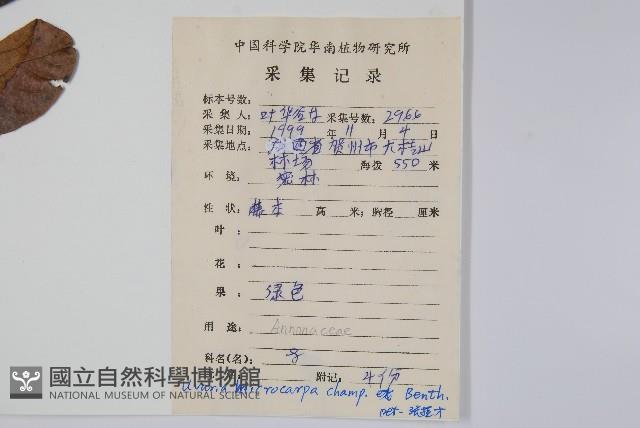 中国科学院华南植物研究所
采集记录
标本号数:
采集人: 叶华谷 采集号数: 2966
采集日期: 1999 年 11 月 4 日
采集地点: 广西省贺州市大桂山
林场 海拨 550 米
环境: 密林
性状: 藤本 高 米; 胸径 厘米
叶:
花:
果: 绿色
用途: Annonaceae
科名(名):
附记: 4份
Uvaria microcarpa champ. ex Benth.
Det-
國立自然科學博物館
NATIONAL MUSEUM OF NATURAL SCIENCE